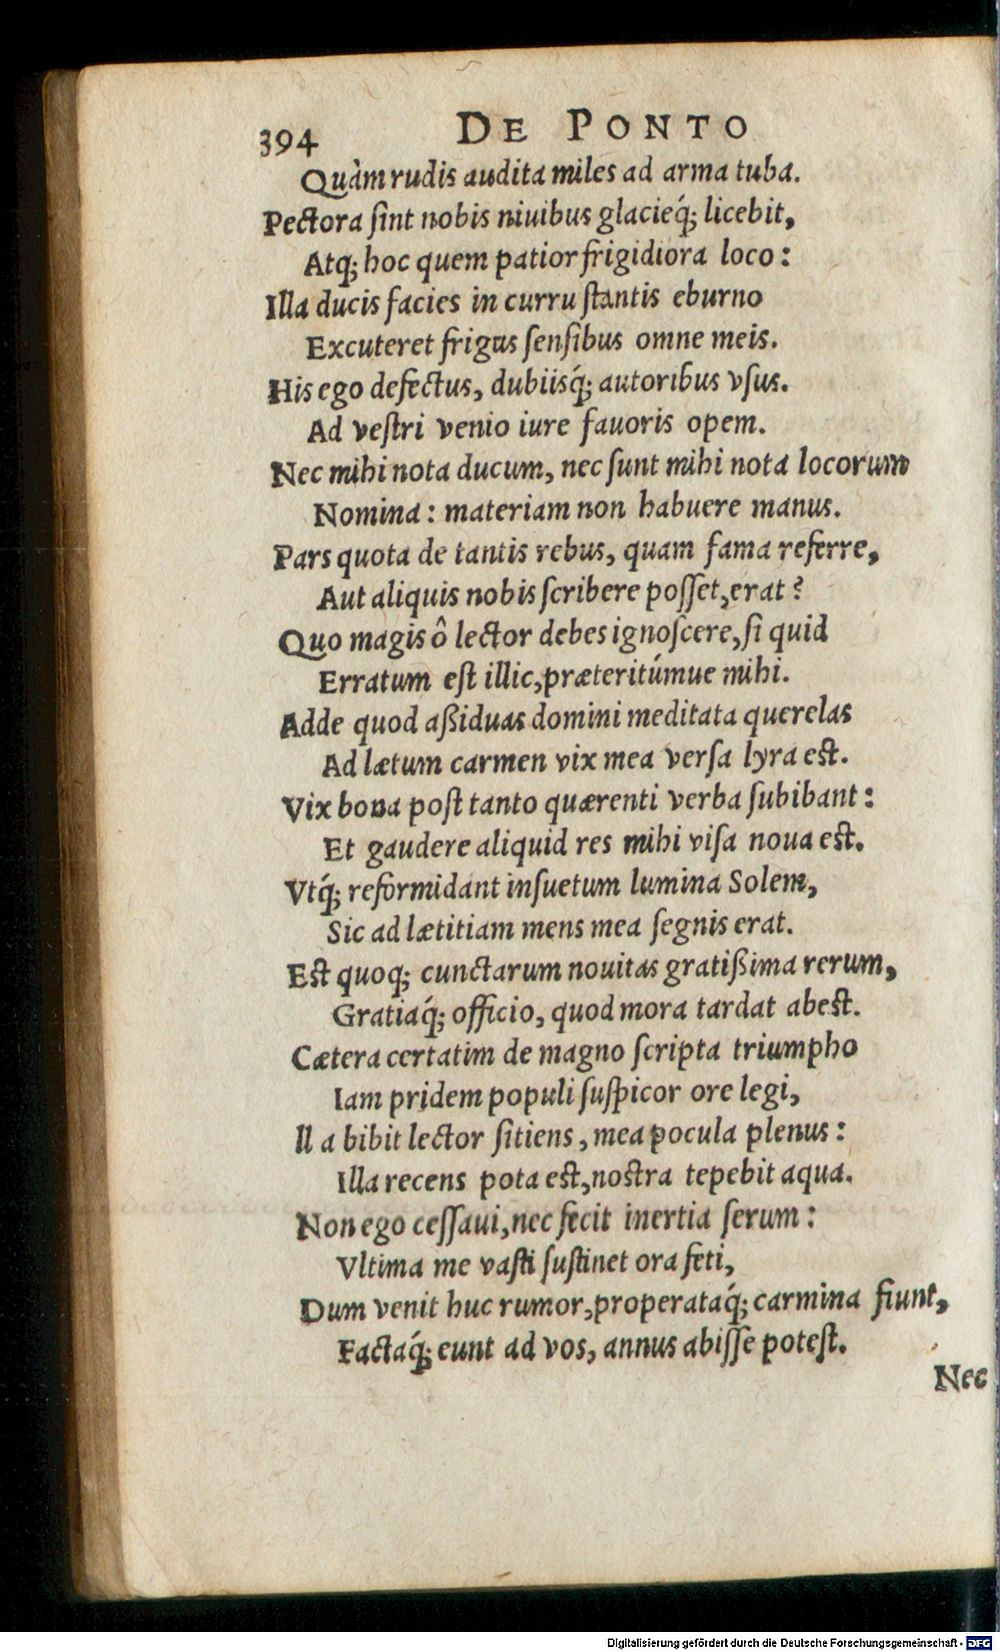 394 DE PONTO
Quàm rudis audita miles ad arma tuba.
Pectora ſint nobis niuibus glacieq́; licebit,
Atq; hoc quem patior frigidiora loco:
Illa ducis facies in curru ſtantis eburno
Excuteret frigus ſenſibus omne meis.
His ego defectus, dubiisq́; autoribus vſus.
Ad veſtri venio iure fauoris opem.
Nec mihi nota ducum, nec ſunt mihi nota locorum
Nomina: materiam non habuere manus.
Pars quota de tantis rebus, quam fama referre,
Aut aliquis nobis ſcribere poſſet, erat?
Quo magis ô lector debes ignoſcere, ſi quid
Erratum eſt illic, præteritúmue mihi.
Adde quod aßiduas domini meditata querelas
Ad lætum carmen vix mea verſa lyra eſt.
Vix bona poſt tanto quærenti verba ſubibant:
Et gaudere aliquid res mihi viſa noua eſt.
Vtq́; reformidant inſuetum lumina Solem,
Sic ad lætitiam mens mea ſegnis erat.
Eſt quoq; cunctarum nouitas gratißima rerum,
Gratiaq́; officio, quod mora tardat abeſt.
Cætera certatim de magno ſcripta triumpho
Iam pridem populi ſuſpicor ore legi,
Il a bibit lector ſitiens, mea pocula plenus:
Illa recens pota eſt, noſtra tepebit aqua.
Non ego ceſſaui, nec fecit inertia ſerum:
Vltima me vaſti ſuſtinet ora feti,
Dum venit huc rumor, properataq́; carmina fiunt,
Factaq́; eunt ad vos, annus abiſſe poteſt.
Nec
Digitalisierung gefördert durch die Deutsche Forschungsgemeinschaft - DFG